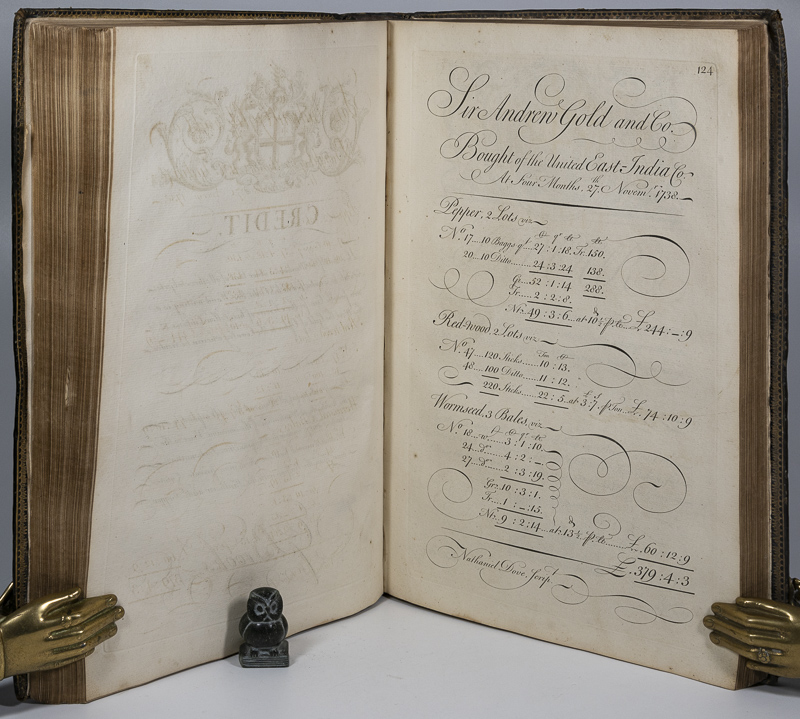 CREDIT.
124
Sir Andrew Gold and Co.
Bought of the United East-India Co.
At Four Months, 27.th Novem.r 1738.
Pepper, 2 Lots viz
C qr lb lb
No. 17....10 Baggs qt. 27 : 1 : 18. Tr. 150.
20....10 Ditto........ 24 : 3 : 24 138.
Gr. 52 : 1 : 14 288.
Tr. 2 : 2 : 8.
Nt. 49 : 3 : 6... at 10 p C £ 244 : – : 9
Red-wood, 2 Lots viz
Ton C
No. 47....120 Sticks.... 10 : 13.
48....100 Ditto..... 11 : 12.
220 Sticks..... 22 : 5. at 3 : 7. p Ton... £. 74 : 10 : 9
Wormseed, 3 Bales, viz
C qr lb
No. 18..... 3 : 1 : 10.
24..do.... 4 : 2 : –.
27..do.... 2 : 3 : 19.
Gr. 10 : 3 : 1.
Tr. 1 : – : 15.
Nt. 9 : 2 : 14...at 13 p C....... £. 60 : 12 : 9
£. 379 : 4 : 3
Nathaniel Dove, Scrip.t